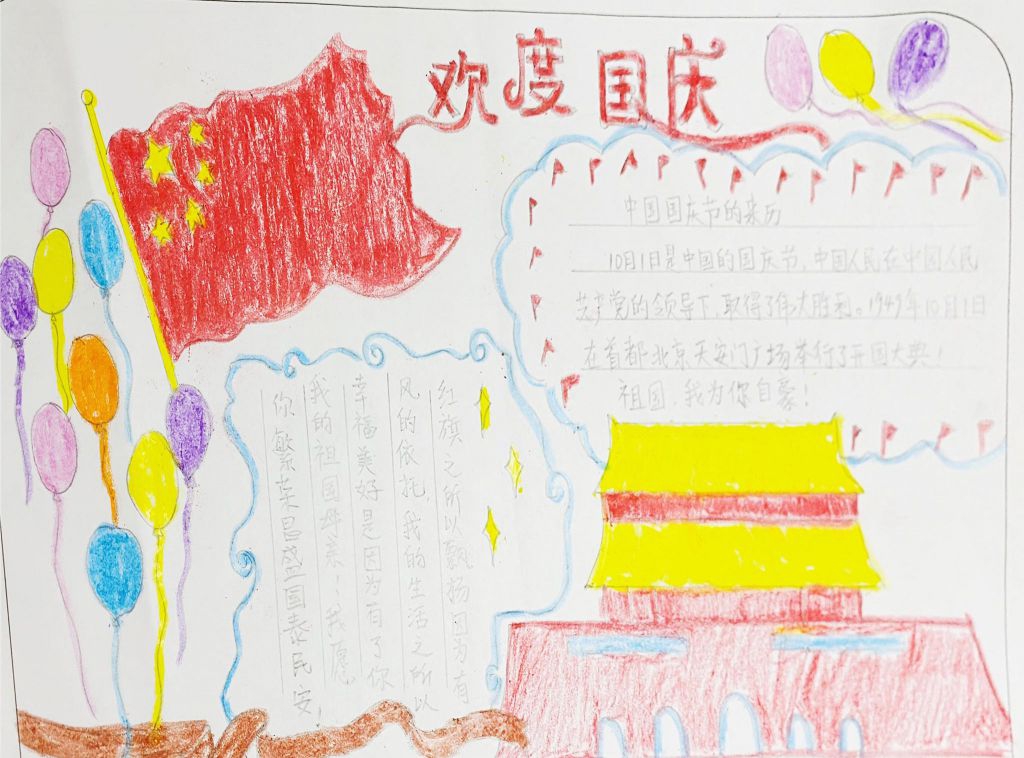 欢度国庆
中国国庆节的来历
10月1日是中国的国庆节,中国人民在中国人民
共产党的领导下,取得了伟大胜利。1949年10月1日
在首都北京天安门广场举行了开国大典!
祖国,我为你自豪!
红旗之所以飘扬因为有
风的依托,我的生活之所以
幸福美好是因为有了你
我的祖国母亲!我愿
你繁荣昌盛国泰民安!